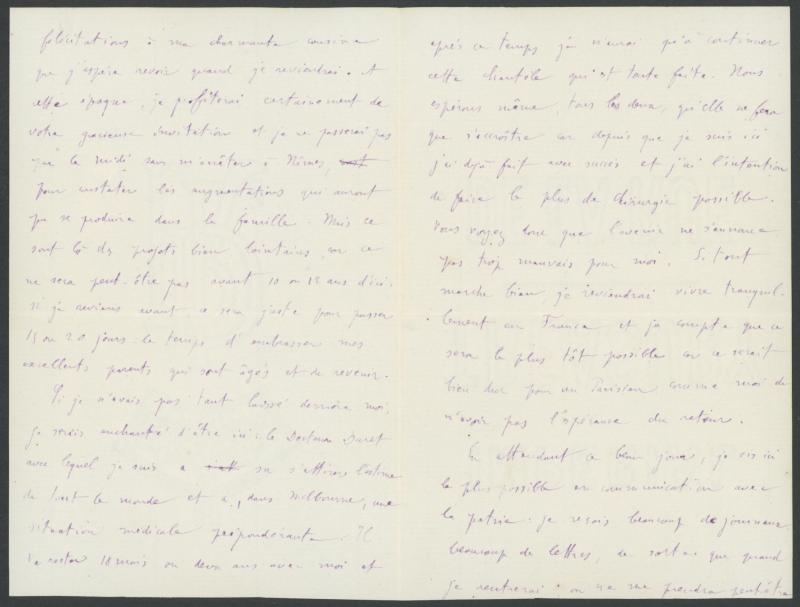 félicitations à ma charmante cousine
que j'espère revoir quand je reviendrai. A
cette époque, je profiterai certainement de
votre gracieuse invitation et je ne passerai pas
par le midi sans m'arrêter à Nîmes,
pour constater les augmentations qui auront
pu se produire dans la famille. Mais ce
sont là des projets bien lointains, car ce
ne sera peut-être pas avant 10 ou 12 ans d'ici.
Si je reviens avant ce sera juste pour passer
15 ou 20 jours le temps d'embrasser mes
excellents parents qui sont âgés et de revenir.
Si je n'avais pas tant laissé derrière moi,
je serais enchanté d'être ici : le Docteur Duret
avec lequel je suis a su s'attirer l'estime
de tout le monde et a, dans Melbourne, une
situation médicale prépondérante. Il
va rester 18 mois ou deux ans avec moi et
après ce temps je n'aurai qu'à continuer
cette clientèle qui est toute faite. Nous
espérons même, tous les deux, qu'elle ne fera
que s'accroître car depuis que je suis ici
j'ai déjà fait avec succès et j'ai l'intention
de faire le plus de chirurgie possible.
Vous voyez donc que l'avenir ne s'annonce
pas trop mauvais pour moi. Si tout
marche bien, je reviendrai vivre tranquil-
lement en France et je compte que ce
sera le plus tôt possible car ce serait
bien dur pour un Parisien comme moi de
n'avoir pas l'espérance du retour.
En attendant ce beau jour, je vis ici
le plus possible en communication avec
la patrie : je reçois beaucoup de journaux
beaucoup de lettres, de sorte que quand
je rentrerai on ne me prendra peut-être